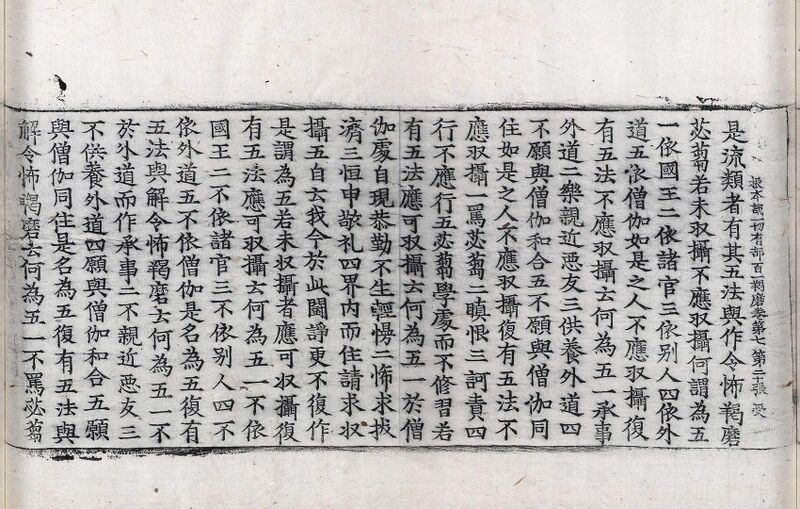 根本說一切有部百一羯磨卷第七 第二張 受
是流類者有其五法與作令怖羯磨
苾蒭若未収攝不應収攝何謂為五
一依國王二依諸官三依别人四依外
道五依僧伽如是之人不應収攝復
有五法不應収攝云何為五一承事
外道二樂親近惡友三供養外道四
不願與僧伽和合五不願與僧伽同
住如是之人不應収攝復有五法不
應収攝一罵苾蒭二瞋恨三訶責四
行不應行五苾蒭學處而不修習若
有五法應可収攝云何為五一於僧
伽處自現恭勤不生輕慢二怖求拔
濟三恒申敬礼四界内而住請求収
攝五自云我今於此鬪諍更不復作
是謂為五若未収攝者應可収攝復
有五法應可収攝云何為五一不依
國王二不依諸官三不依别人四不
依外道五不依僧伽是名為五復有
五法與解令怖羯磨云何為五一不
於外道而作承事二不親近惡友三
不供養外道四願與僧伽和合五願
與僧伽同住是名為五復有五法與
解令怖羯磨云何為五一不罵苾蒭